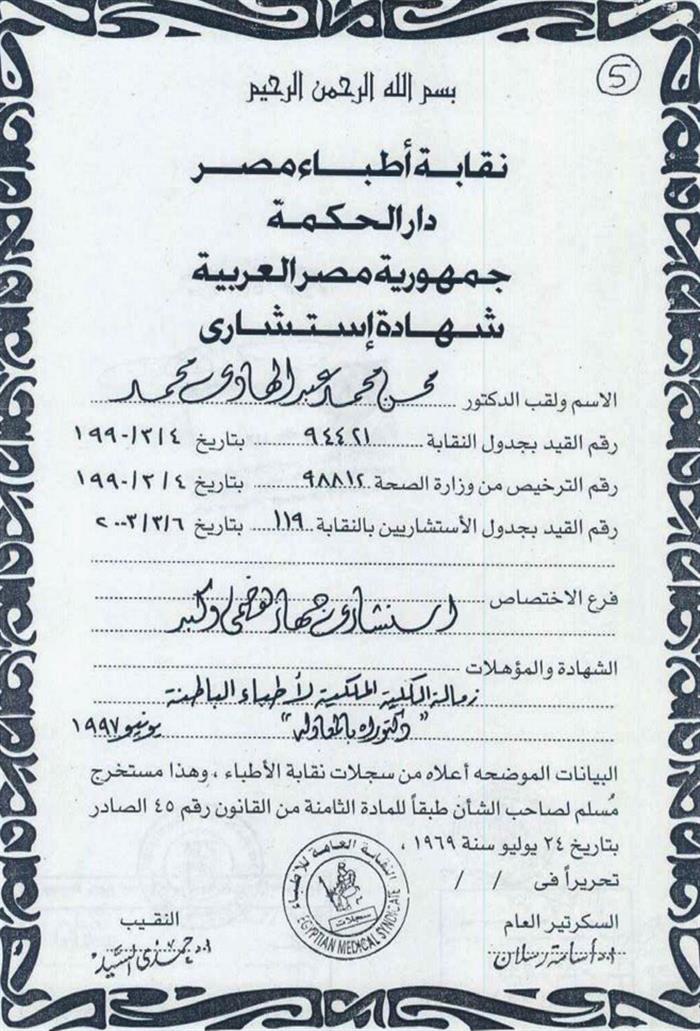 5
بسم الله الرحمن الرحيم
نقابة أطباء مصر
دار الحكمة
جمهورية مصر العربية
شهادة إستشارى
الاسم ولقب الدكتور محسن محمد عبد الهادى محمد
رقم القيد بجدول النقابة ٩٤٤٢١ بتاريخ ١٩٩٠/٣/٤
رقم الترخيص من وزارة الصحة ٩٨٨١٢ بتاريخ ١٩٩٠/٣/٤
رقم القيد بجدول الأستشاريين بالنقابة ١١٩ بتاريخ ٢٠٠٣/٣/٦
فرع الاختصاص
استشارى جهاز هضمى وكبد
الشهادة والمؤهلات
زمالة الكلية الملكية لأطباء الباطنة
"دكتوراه بالمعادلة" يونيو ١٩٩٧
البيانات الموضحه أعلاه من سجلات نقابة الأطباء ، وهذا مستخرج
مُسلم لصاحب الشأن طبقاً للمادة الثامنة من القانون رقم ٤٥ الصادر
بتاريخ ٢٤ يوليو سنة ١٩٦٩ ،
تحريراً فى / /
النقابة العامة للأطباء
سجلات
EGYPTIAN MEDICAL SYNDICATE
السكرتير العام النقيب
ا.د اسامة رسلان ا.د حمدى السيد